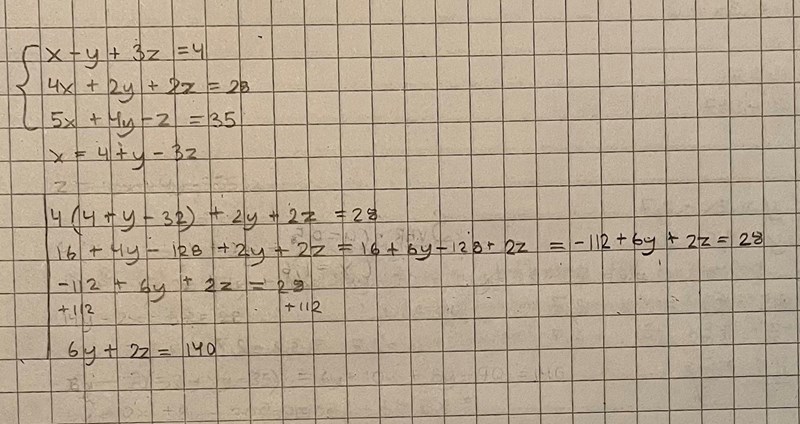 x - y + 3z = 4
4x + 2y + 2z = 28
5x + 4y - z = 35
x = 4 + y - 3z
4(4 + y - 32) + 2y + 2z = 28
16 + 4y - 128 + 2y + 2z = 16 + 6y - 128 + 2z = -112 + 6y + 2z = 28
-112 + 6y + 2z = 28
+112 +112
6y + 2z = 140